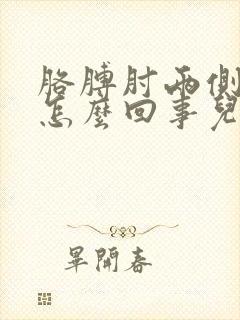 胳膊肘兩側
怎麼回事兒
畢開春